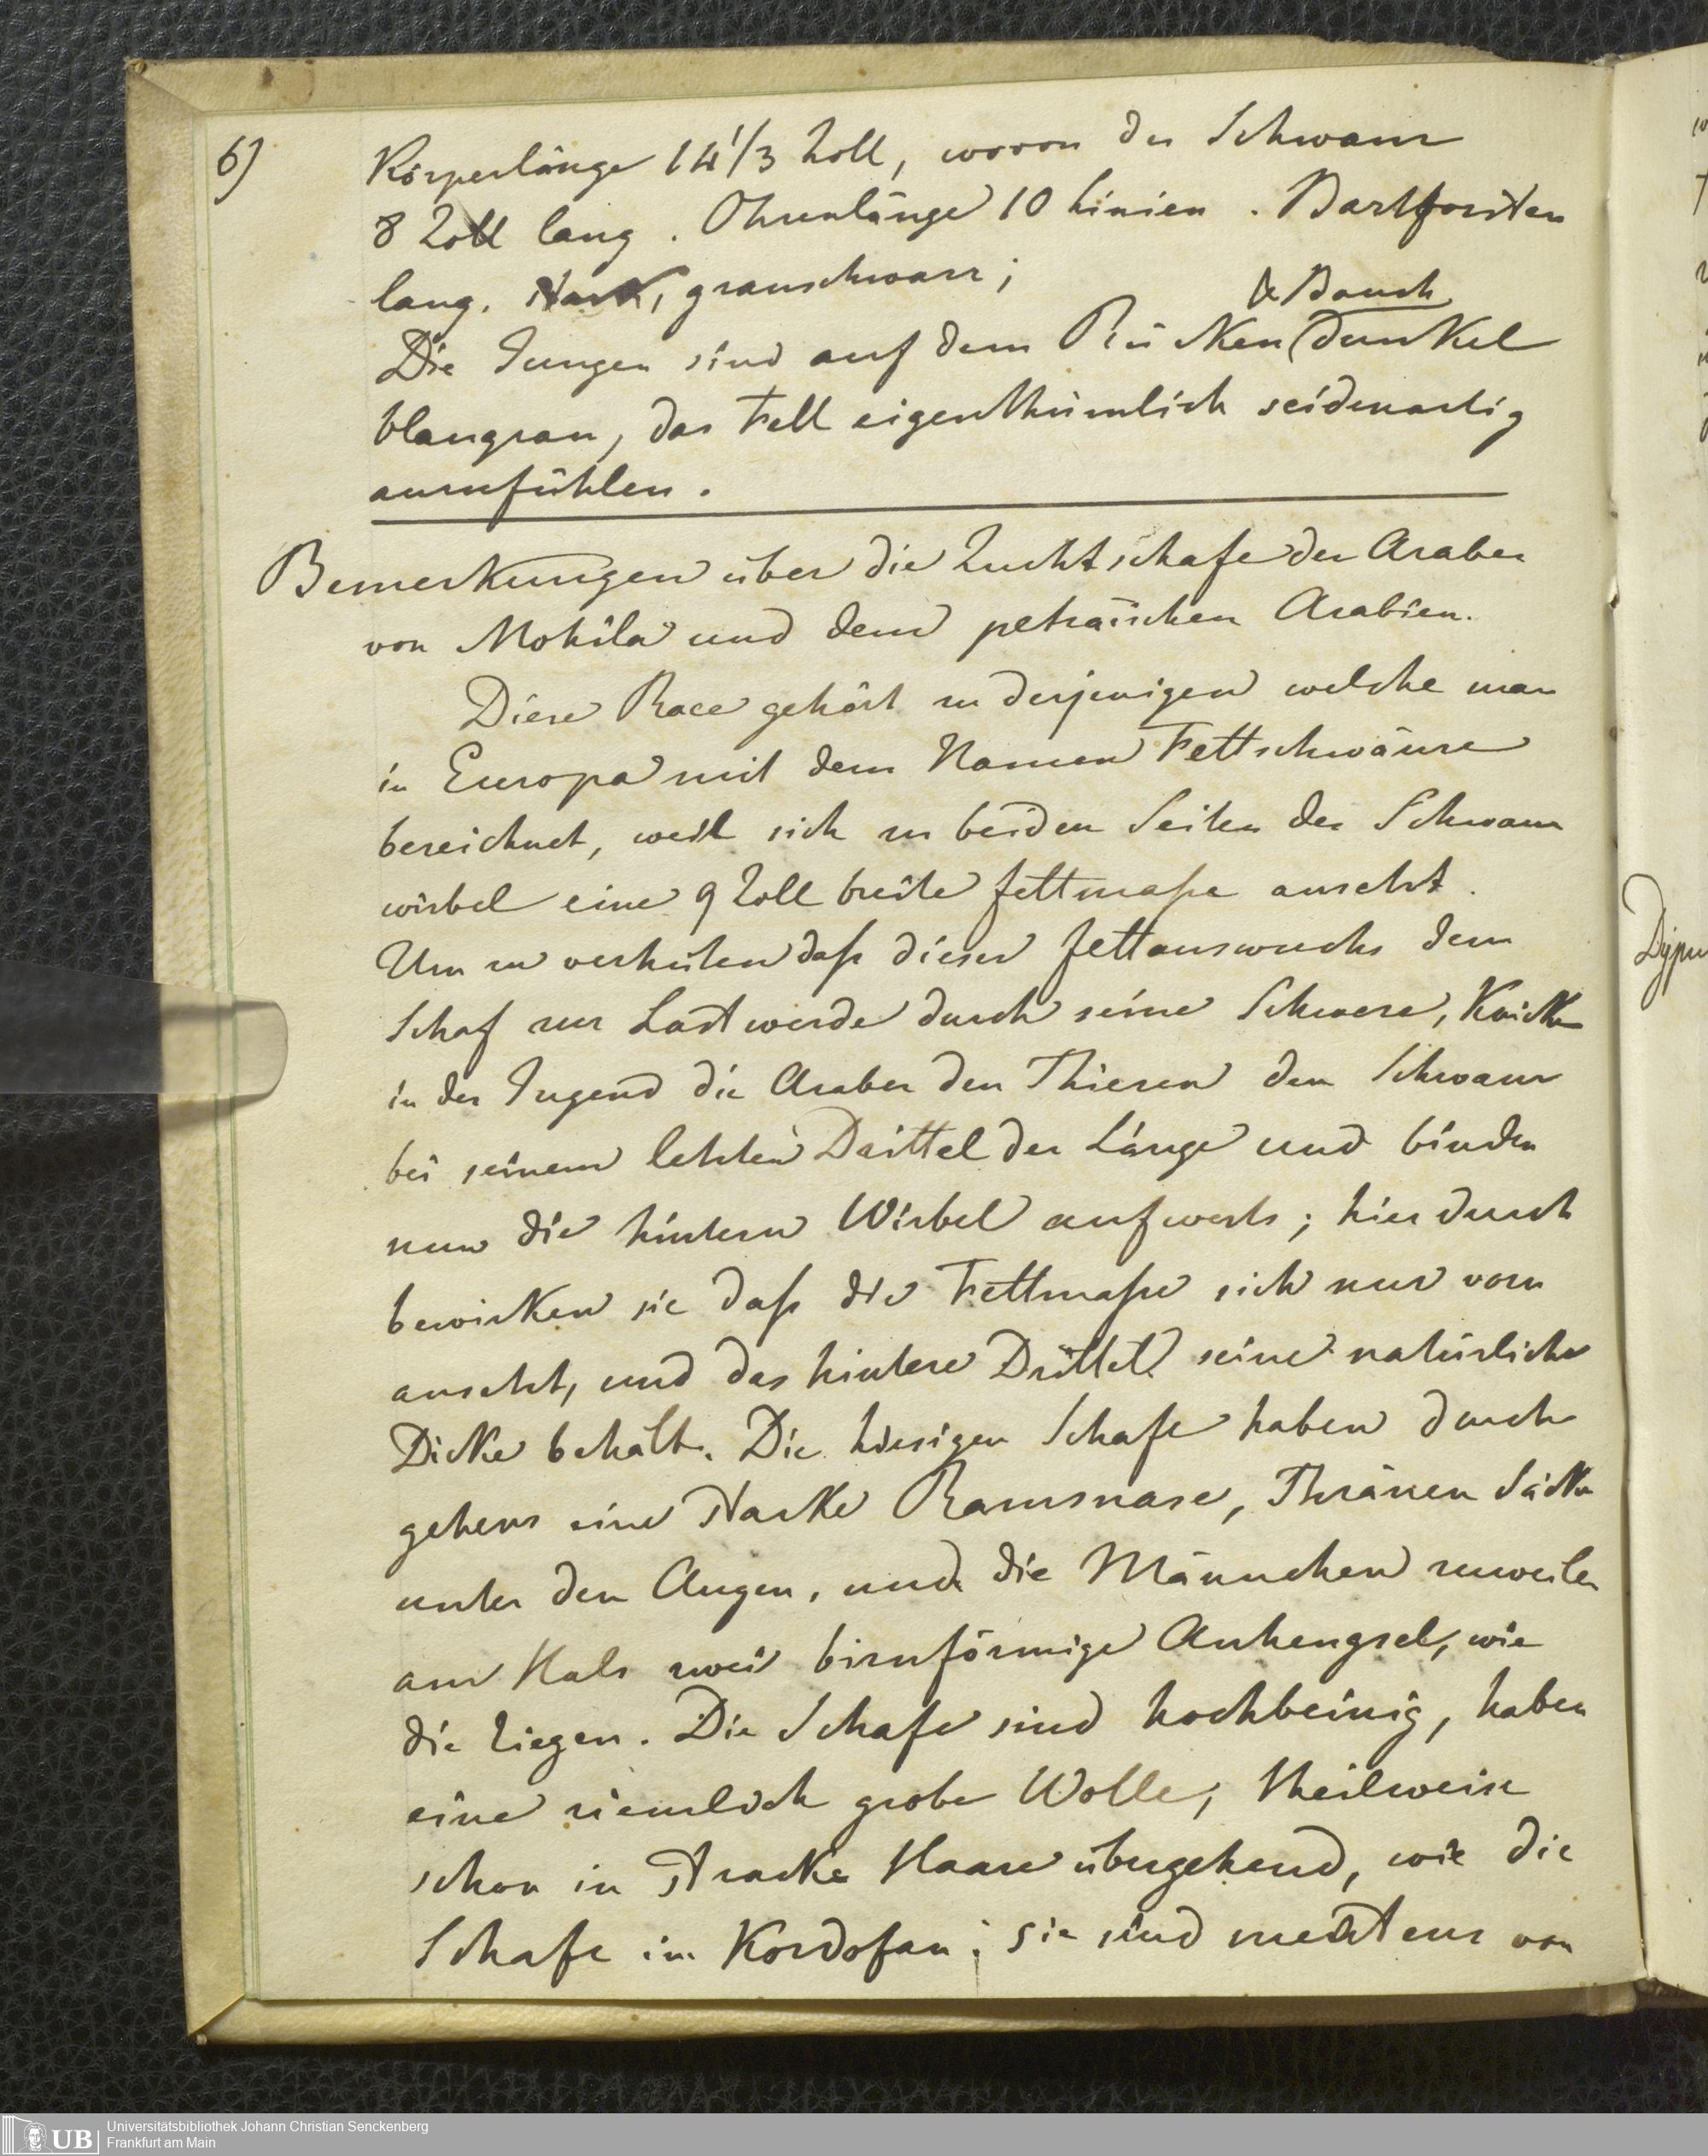 6)
Körperlänge 14 1/3 Zoll, wovon der Schwanz
8 Zoll lang. Ohrenlänge 10 Linien. Bartborsten
lang, stark, grauschwarz;
& Bauch
Die Jungen sind auf dem Rücken dunkel
blaugrau, das Fell eigenthümlich seidenartig
anzufühlen.
Bemerkungen über die Zuchtschafe der Araber
von Mohila und dem peträischen Arabien.
Diese Race gehört zu derjenigen welche man
in Europa mit dem Namen Fettschwänze
bezeichnet, weil sich zu beiden Seiten der Schwanz
wirbel eine 9 Zoll breite Fettmaße ansetzt.
Um zu verhüten daß dieser Fettauswuchs dem
Schaf zur Last werde durch seine Schwere, knicken
in der Jugend die Araber den Thieren den Schwanz
bei seinem letzten Drittel der Länge und binden
nun die hintern Wirbel aufwerts; hierdurch
bewirken sie daß die Fettmaße sich nur vorn
ansetzt, und das hintere Drittel seine natürliche
Dicke behält. Die hiesigen Schafe haben durch
gehens eine starke Ramsnase, Thränen Säcke
unter den Augen, und die Männchen zuweilen
am Hals zwei birnförmige Anhengsel, wie
die Ziegen. Die Schafe sind hochbeinig, haben
eine ziemlich grobe Wolle, theilweise
schon in stracke Haare übergehend, wie die
Schafe in Kordofan; sie sind meistens von
Universitätsbibliothek Johann Christian Senckenberg
Frankfurt am Main
UB